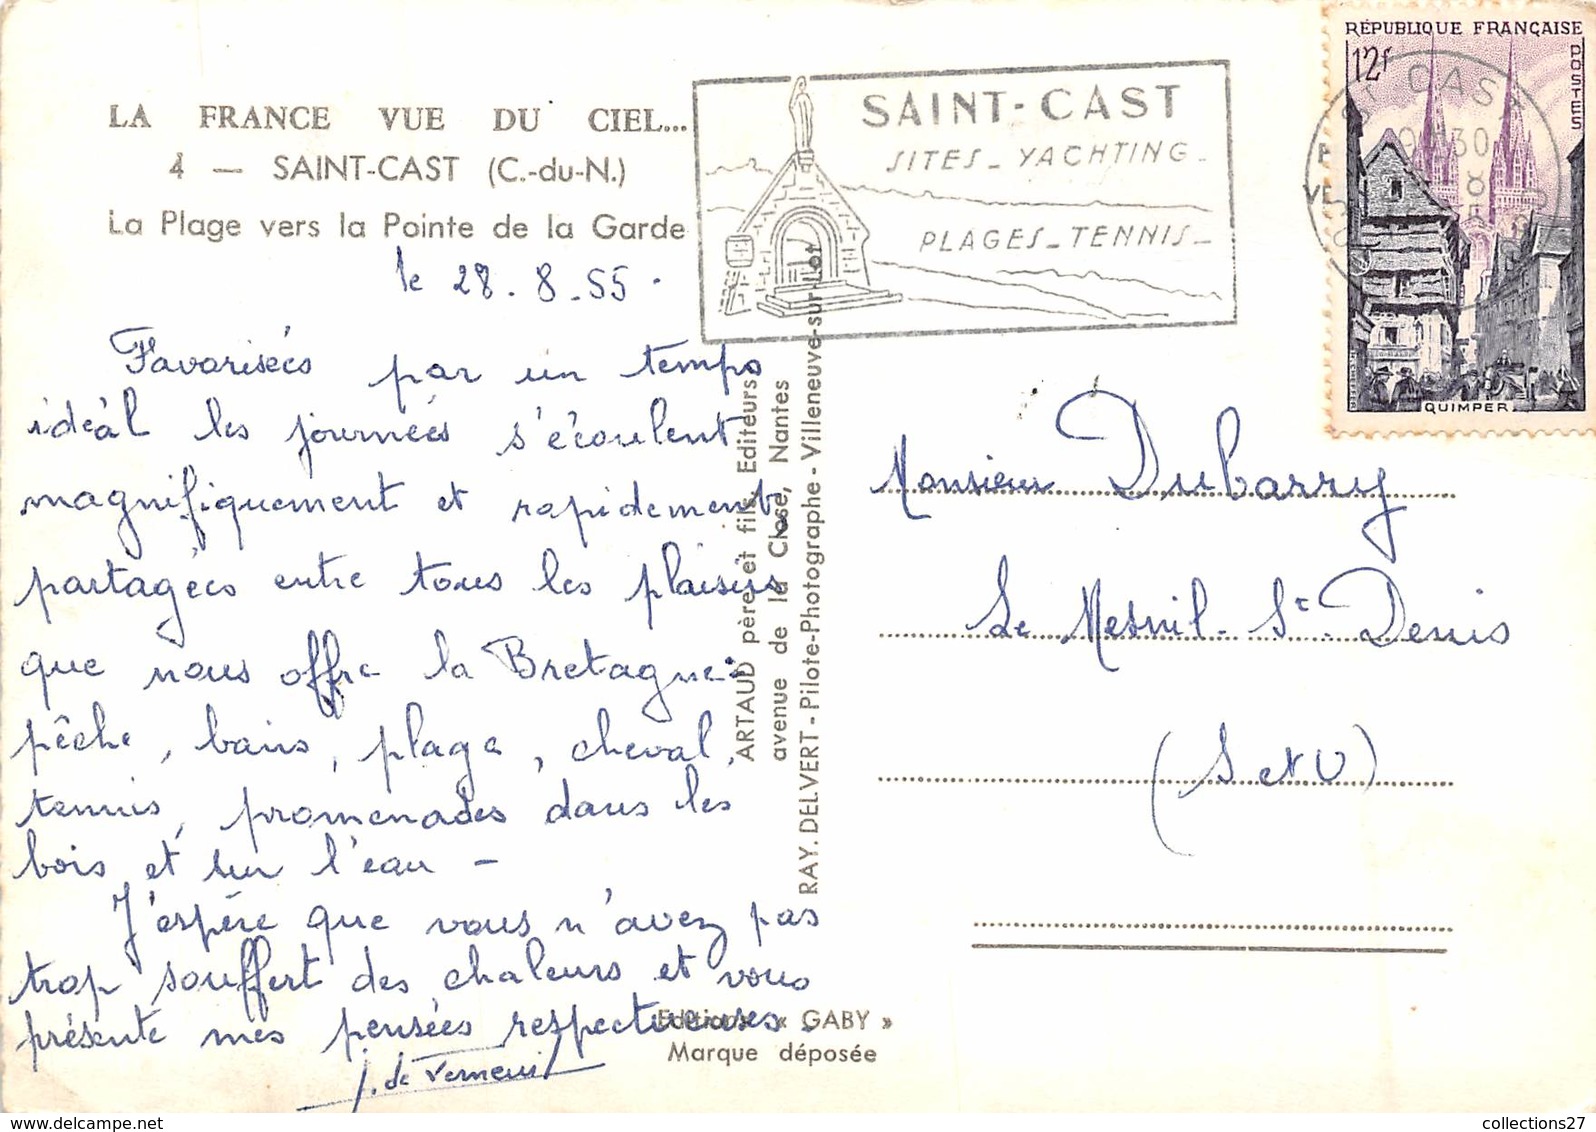 LA FRANCE VUE DU CIEL...
4 — SAINT-CAST (C.-du-N.)
La Plage vers la Pointe de la Garde
le 28.8.55.
Favorisées par un temps
idéal les journées s'écoulent
magnifiquement et rapidement,
partagées entre tous les plaisirs
que nous offre la Bretagne:
pêche, bains, plage, cheval,
tennis, promenades dans les
bois et sur l'eau -
J'espère que vous n'avez pas
trop souffert des chaleurs et vous
présente mes pensées respectueuses.
J. de Verneuil
ARTAUD père et fils, Editeurs
avenue de la Close, Nantes
RAY. DELVERT - Pilote-Photographe - Villeneuve-sur-Lot
Editions « GABY »
Marque déposée
SAINT-CAST
SITES - YACHTING -
PLAGES - TENNIS -
RÉPUBLIQUE FRANÇAISE
12f
POSTES
ST CAST
9H30
QUIMPER
Monsieur Dubarry
Le Mesnil-St-Denis
(S et O)
collections27